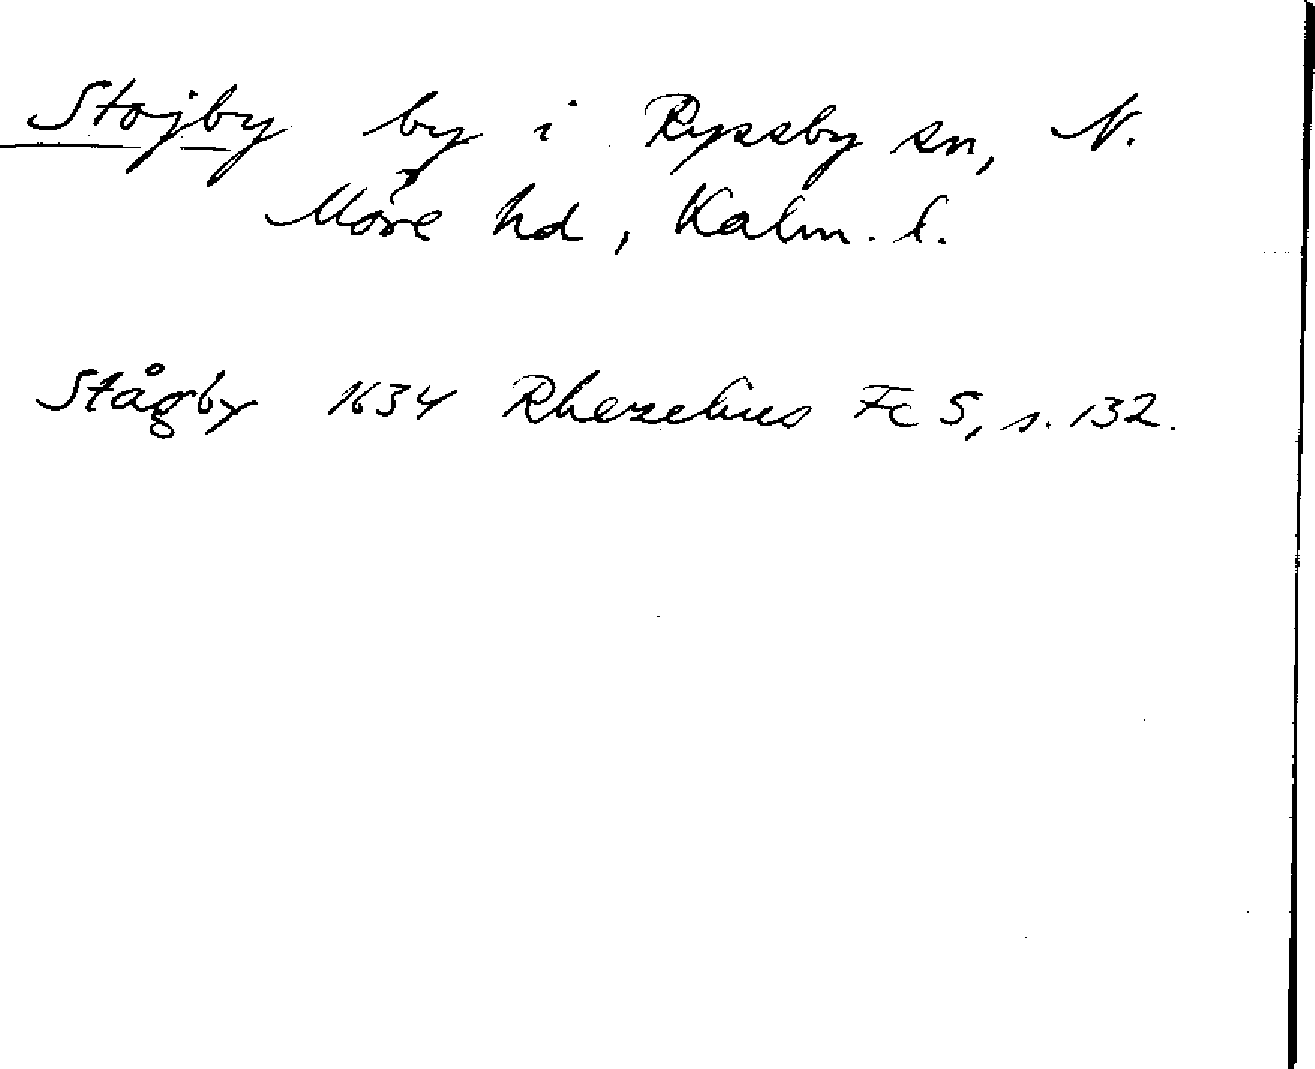 Stojby by i Ryssby sn, N.
Möre hd, Kalm. l.
Stågby 1634 Rhezelius Fc 5, s. 132.